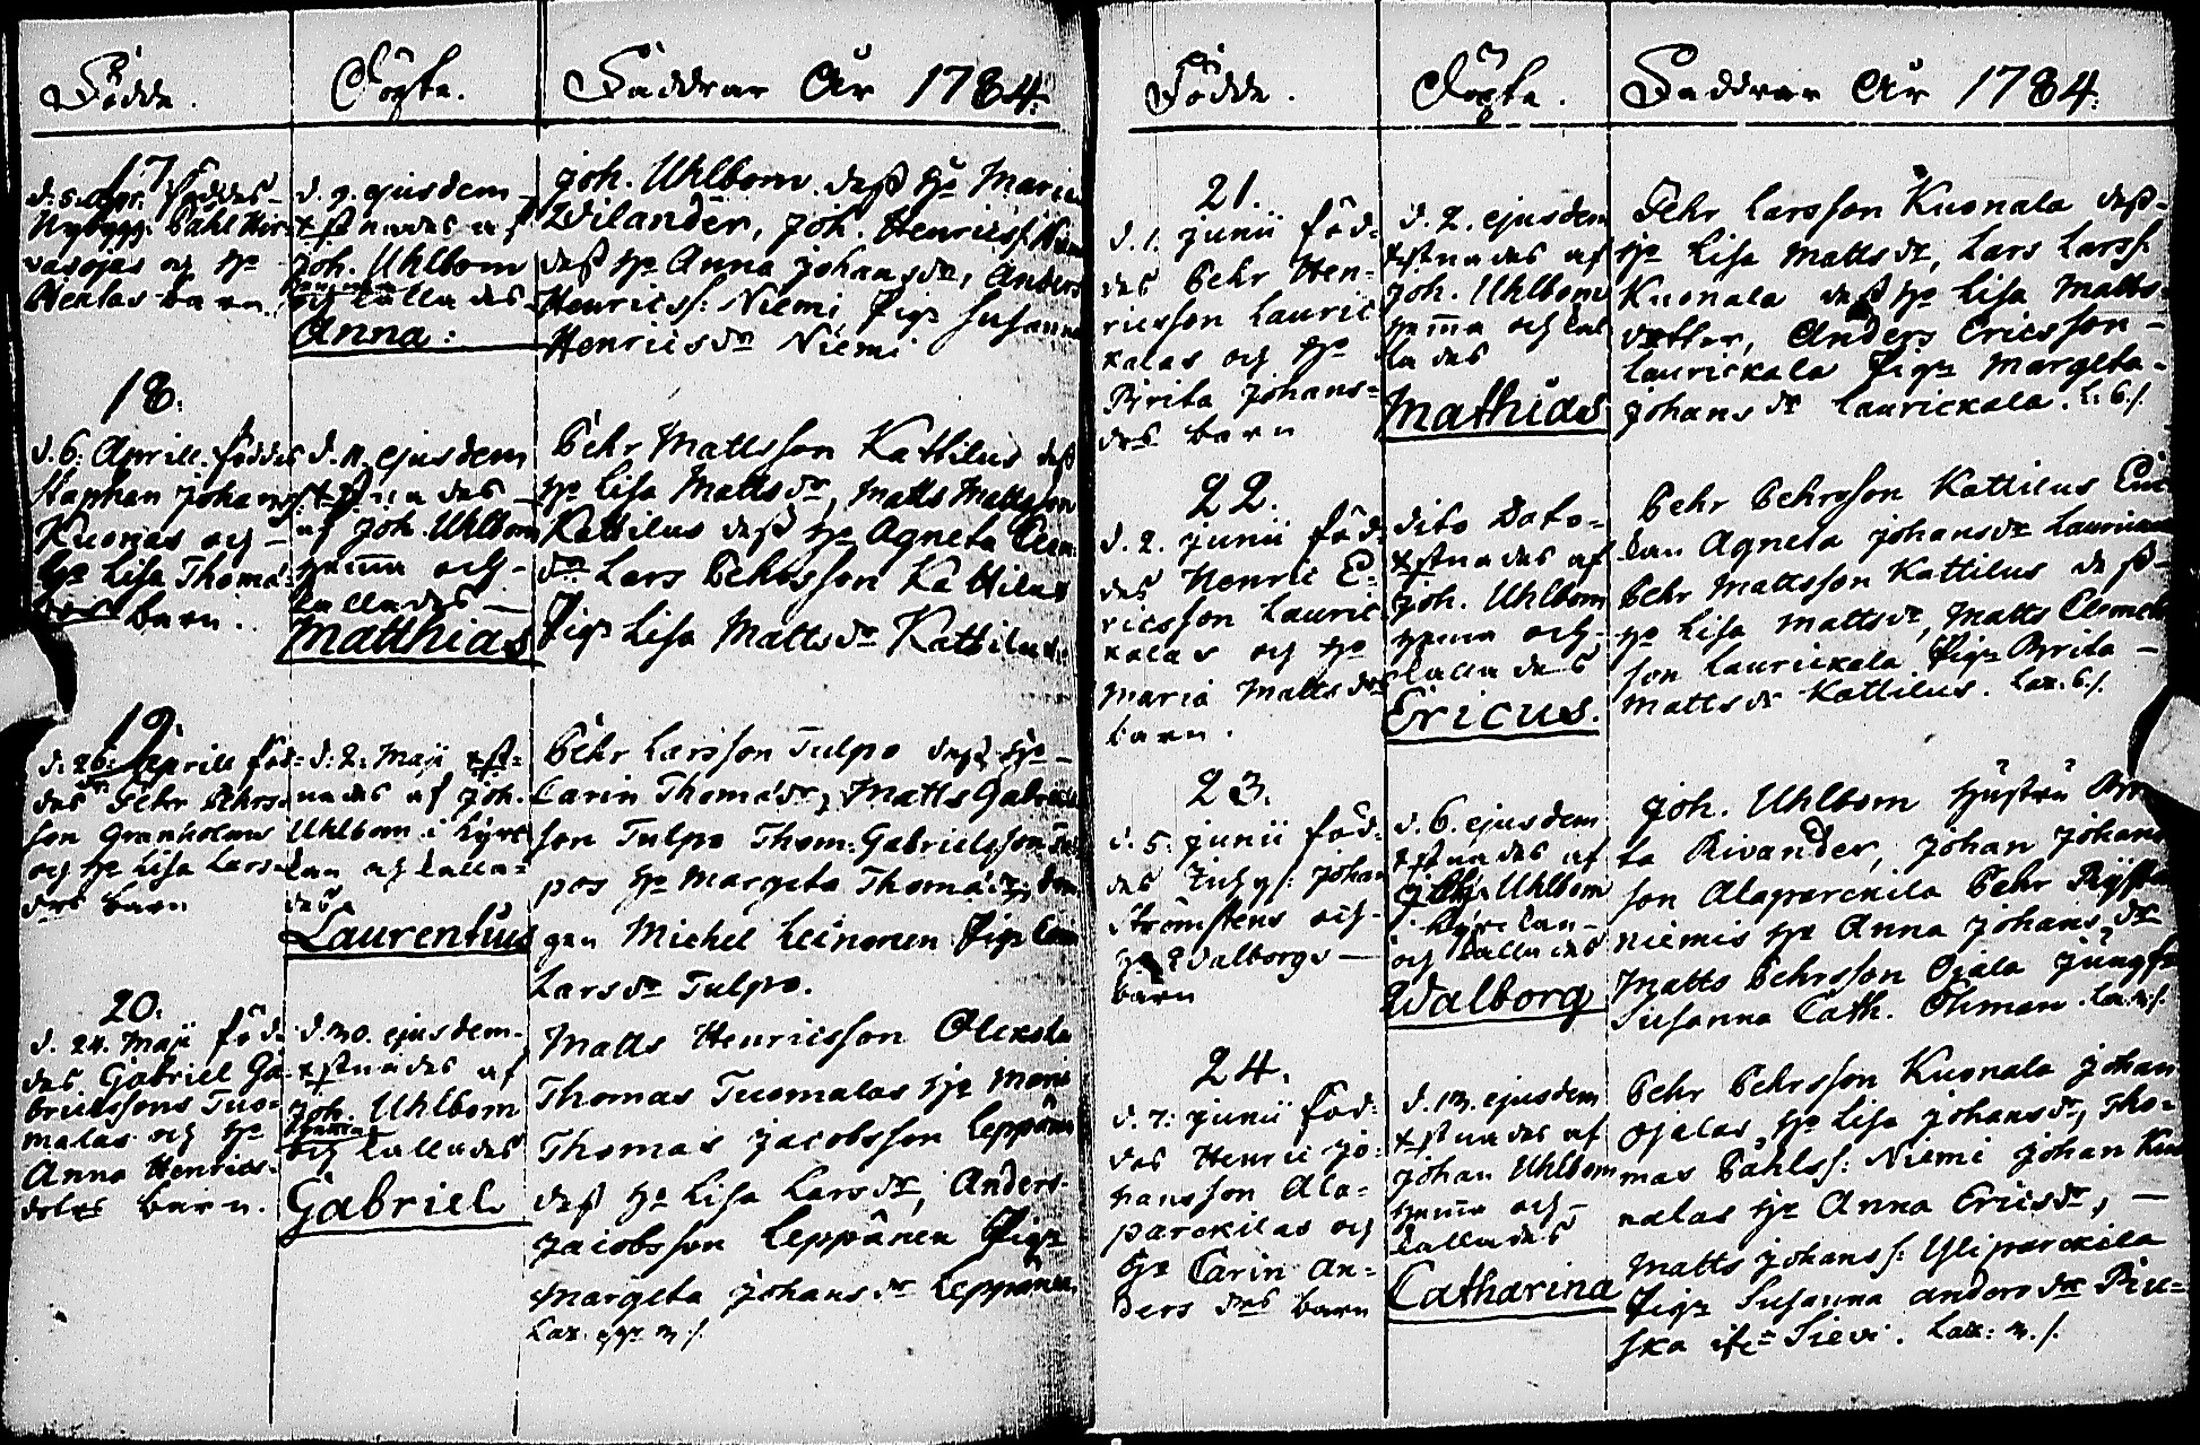 Födde.
Döpte.
Faddrar År 1784.
17.
d. 5. Apr. föddes
Nybygg. Pahl Hir-
vasojas och H:o
Beatas barn.
d. 9. ejusdem
xstnades af
Joh. Uhlbom
hemma
och kallades
Anna:
Joh. Uhlbom. dess H:o Maria
Wilander, Joh. Henricss: Niemi
dess H:o Anna Johansdr, Anders
Henricss: Niemi Pig: Susanna
Henricsdr Niemi
18.
d. 6. Aprill. föddes
Staphan Johans
Kuonas och
H:o Lisa Thomæ
drs barn.
d. 11. ejusdem
xstnades
af Joh. Uhlbom
hemma och
kallades
Matthias
Pehr Mattsson Kattilus dess
H:o Lisa Mattsdr, Matts Mattsson
Kattilus dess H:o Agneta Clem
dr Lars Pehrsson Kattilus
Pig: Lisa Mattsdr Kattilus.
19.
d. 26. Aprill föd-
des Pehr Pehrs-
son Granholms
och H:o Lisa Lars-
drs barn
d. 2. Maji xst-
nades af Joh.
Uhlbom i Kyrc
kan och kalla-
des
Laurentius
Pehr Larsson Tulpo dess H:o
Carin Thomædr, Matts Gabriels
son Tulpo Thom: Gabrielsson Tul
pos H:o Margeta Thomædr, Drän
gen Michel Leinonen Pig: Carin
Larsdr Tulpo.
20.
d. 24. Maji föd-
des Gabriel Ga
brielssons Tuo-
malas och H:o
Anna Henrics-
dotrs barn.
d. 30. ejusdem
xstnades af
Joh. Uhlbom
hemma
och kallades
Gabriel
Matts Henricsson Oleksla
Thomas Tuomalas H:o Maria
Thomas Jacobsson Leppänen
dess H:o Lisa Larsdr, Anders
Jacobsson Leppänen Pig:
Margeta Johansdr Leppänen
Födde.
Döpte.
Faddrar År 1784.
21.
d. 1. Junii föd-
des Pehr Hen-
ricsson Lauric
kalas och H:o
Brita Johans-
drs barn
d. 2. ejusdem
xstnades af
Joh. Uhlbom
hemma och kal
lades
Mathias
Pehr Larsson Kuonala dess
H:o Lisa Mattsdr, Lars Larss:
Kuonala dess H:o Lisa Matts-
dotter, Anders Ericsson
Laurickala Pig: Margeta
Johansdr Laurickala. L. 6 /.
22.
d. 2. Junii föd-
des Henric E-
ricsson Lauric
kalas och H:o
Maria Mattsdrs
barn.
dito Dato
xstnades af
Joh. Uhlbom
hemma och
kallades
Ericus.
Pehr Pehrsson Kattilus Enc
kan Agneta Johansdr Laurinen
Pehr Mattsson Kattilus dess
H:o Lisa Mattsdr, Matts Clemets
son Laurickala Pig: Brita
Mattsdr Kattilus. Lax. 6 /.
23.
d. 5. Junii föd-
des Johan
Strömstens och
H:o Walborgs
barn
d. 6. ejusdem
xstnades af
Joh. Uhlbom
i Kyrckan
och kallades
Walborg
Joh. Uhlbom Hustru Bri
ta Rivander, Johan Johans
son Alaparckila Pehr
Niemis H:o Anna Johansdr
Matts Pehrsson Ojala Jungfr
Susanna Cath. Öhman.
24.
d. 7. Junii föd-
des Henric Jo-
hansson Ala-
parckilas och
H:o Carin An-
ders drs barn
d. 13. ejusdem
xstnades af
Johan Uhlbom
hemma och
kallades
Catharina
Pehr Pehrsson Kuonala Johan
Ojalas H:o Lisa Johansdr, Tho-
mas Pahlss: Niemi Johan Kuo
nalas H:o Anna Ericsdr,
Matts Johanss: Yliparckila
Pig: Susanna Andersdr Rie-
ska ifr Sievi. Lax: 3 /.